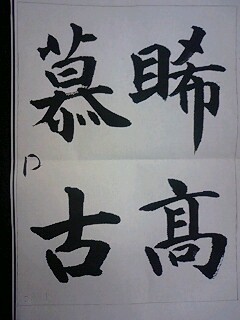 睎高
慕古